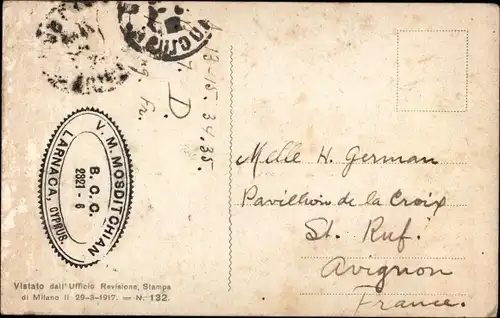 13-15. 34. 35.
7. D.
Fr.
V. M. MOSDITCHIAN
B. C. C.
2921 - 6
LARNACA, CYPRUS.
Melle H. German
Pavillion de la Croix
St. Ruf.
Avignon
France.
Vistato dall'Ufficio Revisione, Stampa
di Milano il 29-3-1917. — N. 132.